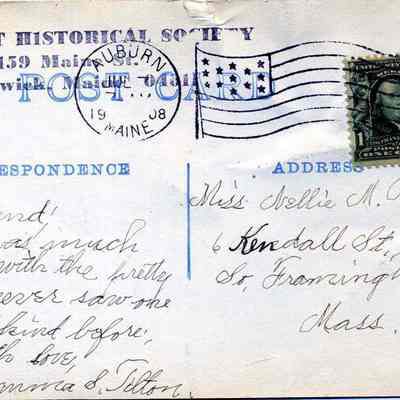 T HISTORICAL SOCIETY
159 Maine St.
wick, Maine 0401
POST CARD
AUBURN
JUL
19 08
MAINE
1
RESPONDENCE
ADDRESS
end,
as much
with the pretty
ever saw one
kind before,
th love,
mma S. Tilton.
Miss Nellie M.
6 Kendall St.,
So. Framingh
Mass.